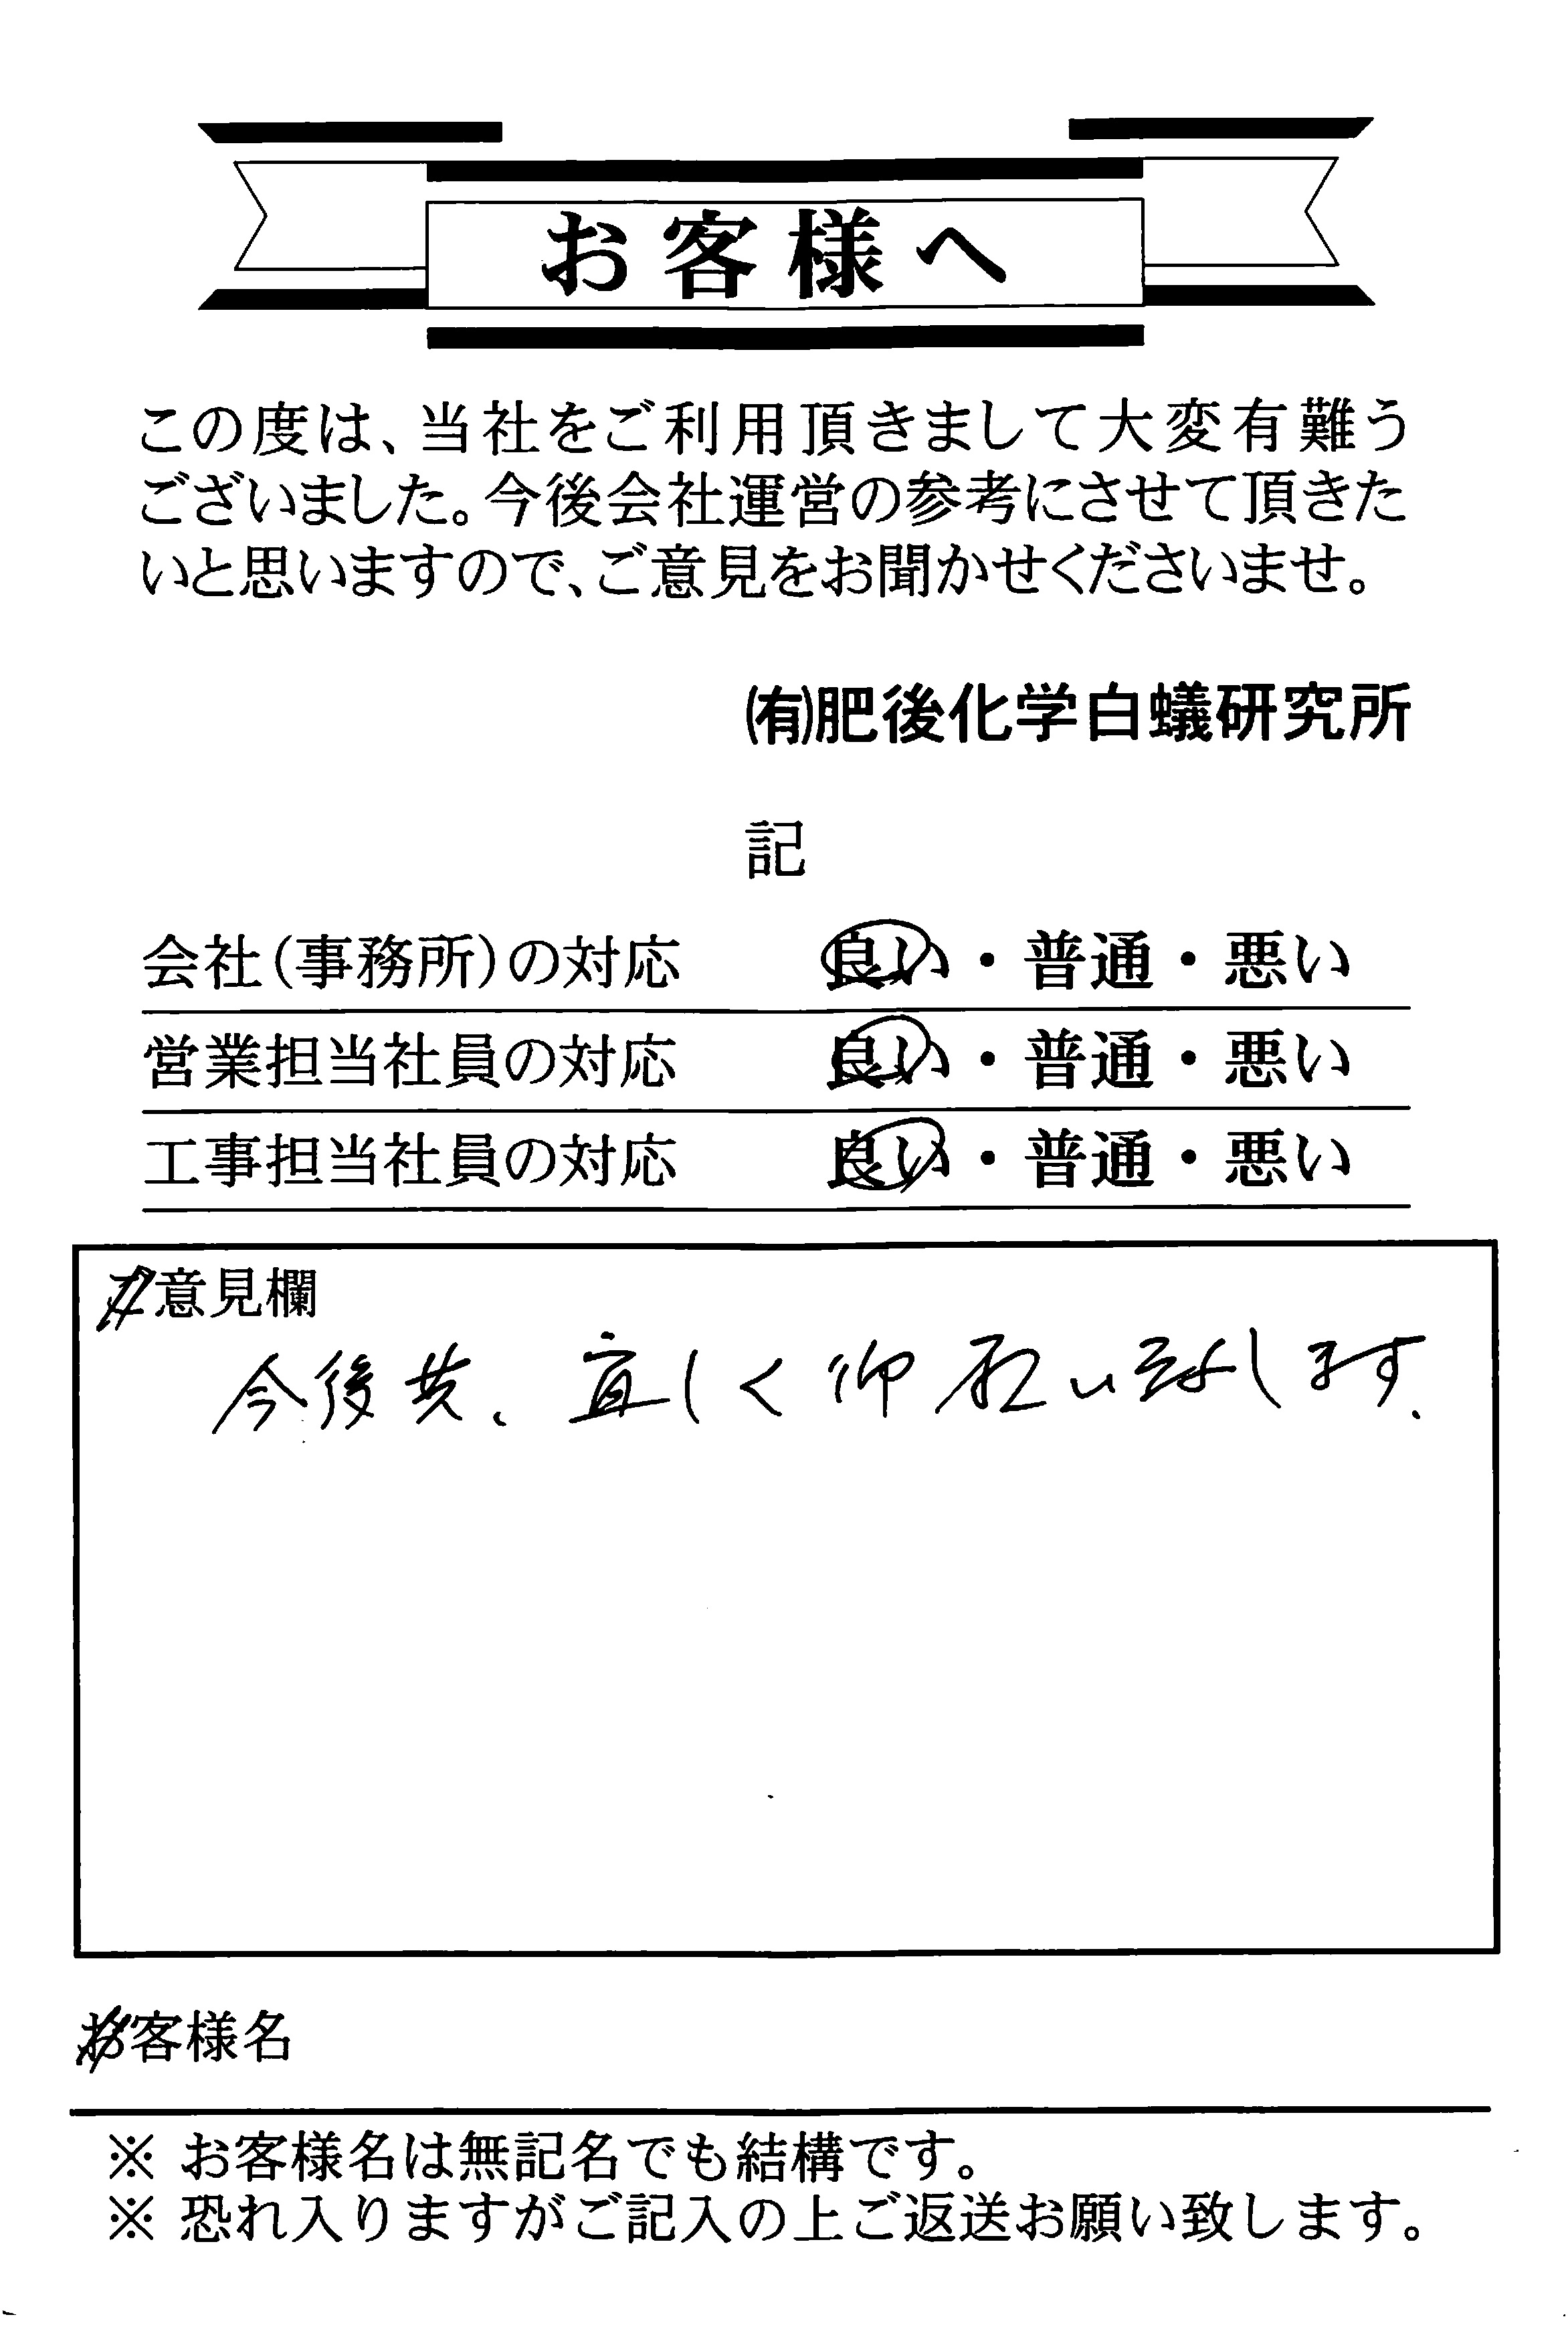 お客様へ
この度は、当社をご利用頂きまして大変有難う
ございました。今後会社運営の参考にさせて頂きた
いと思いますので、ご意見をお聞かせくださいませ。
㈲肥後化学白蟻研究所
記
会社(事務所)の対応 良い・普通・悪い
営業担当社員の対応 良い・普通・悪い
工事担当社員の対応 良い・普通・悪い
ご意見欄
今後共、宜しく御願い致します.
お客様名
※ お客様名は無記名でも結構です。
※ 恐れ入りますがご記入の上ご返送お願い致します。